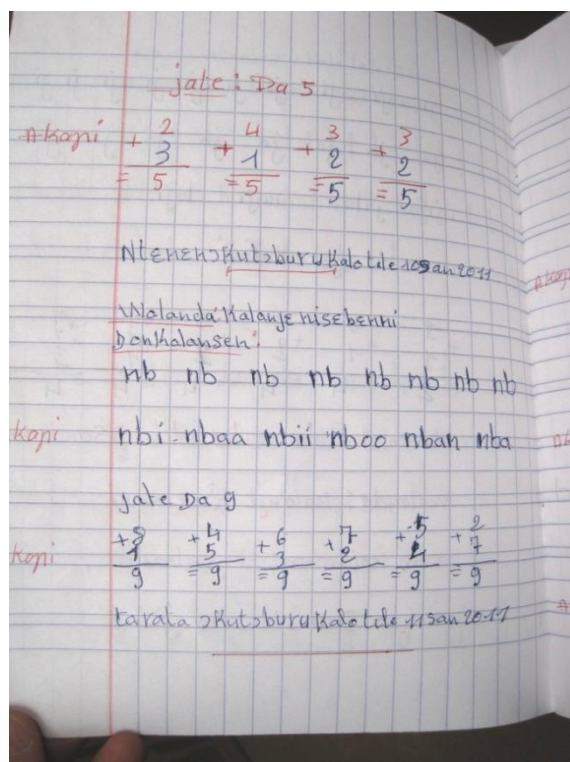 jate : Da 5
A kopi
+ 2 + 4 + 3 + 3
3 1 2 2
= 5 = 5 = 5 = 5
Ntɛnɛn ɔkutɔburu kalo tile 10 san 2011
Walanda kalanje ni sɛbenni
Donkalansen :
nb nb nb nb nb nb nb nb
kopi nbi - nbaa nbii nboo nban nba
jate Da 9
kopi
+ 8 + 4 + 6 + 7 + 5 + 2
1 5 3 2 4 7
9 = 9 = 9 = 9 = 9 = 9
tarata ɔkutɔburu kalo tile 11 san 2011